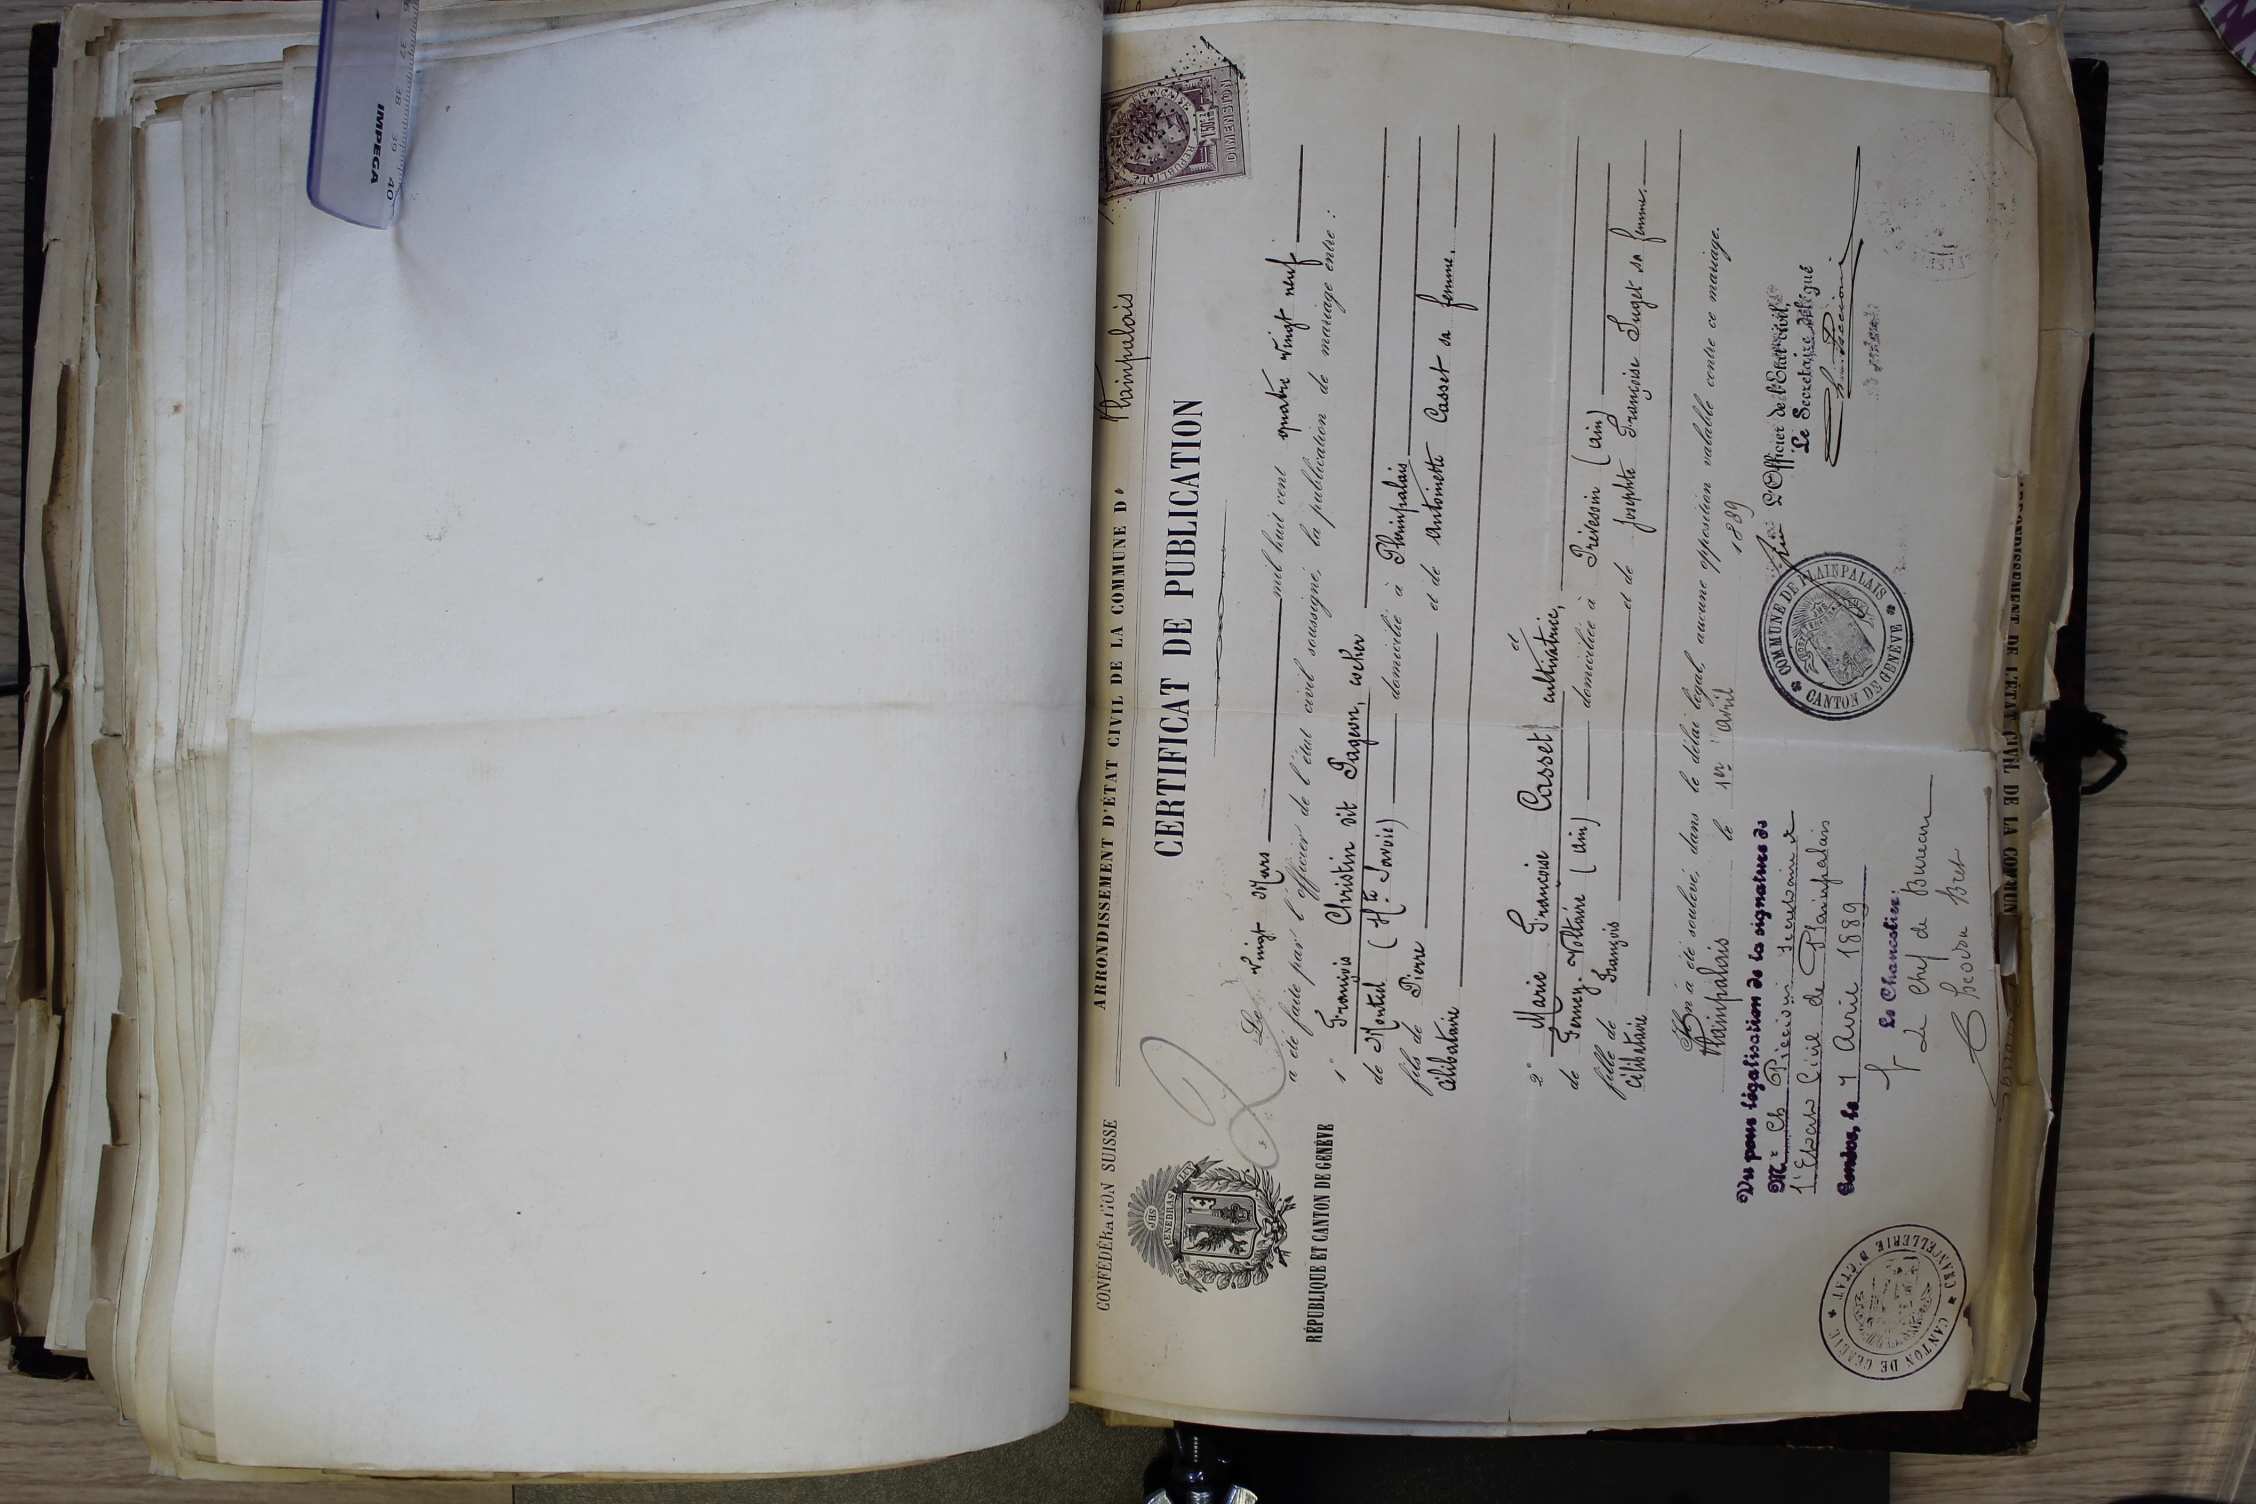 CONFÉDÉRATION SUISSE
ARRONDISSEMENT D'ÉTAT CIVIL DE LA COMMUNE D Plainpalais
RÉPUBLIQUE FRANÇAISE
1 50
DIMENSION
CERTIFICAT DE PUBLICATION
JHS
POST TENEBRAS LUX
RÉPUBLIQUE ET CANTON DE GENÈVE
2
Le vingt Mars mil huit cent quatre vingt neuf
a été faite par l'officier de l'état civil soussigné, la publication de mariage entre :
1° François Christin dit Pagen, cocher
de Montul (Hte Savoie) domicilié à Plainpalais
fils de Pierre et de Antoinette Casset sa femme.
Célibataire
et
2° Marie Françoise Casset, cultivatrice,
de Ferney-Voltaire (Ain) domiciliée à Prévessin (Ain)
fille de François et de Josephte Françoise Fuget sa femme.
Célibataire
Il n'a été soulevé, dans le délai légal, aucune opposition valable contre ce mariage.
Plainpalais le 1er avril 1889
L'Officier de l'Etat civil,
Le Secrétaire délégué
COMMUNE DE PLAINPALAIS
CANTON DE GENÈVE
Vu pour légalisation de la signature de
Mr Ch Piccioni secrétaire de
l'Etat Civil de Plainpalais
Genève, le 4 Avril 1889
Le Chancelier:
Le Chef de Bureau
Theodore Bret
CANTON DE GENEVE
CHANCELLERIE D'ETAT
ARRONDISSEMENT DE L'ÉTAT CIVIL DE LA COMMUNE
IMPEGA
37 38 39 40